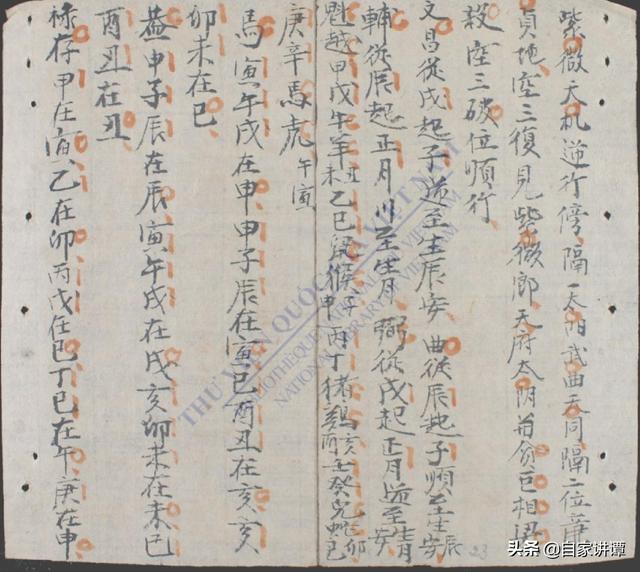 紫微天机逆行傍隔一太阳武曲天同隔二位
貞地空三復見紫微郎天府太阴貪巨相梁
殺空三破位順行
文昌從戌起子逆至生辰安 曲從辰起子順至生辰安
輔從辰起正月至生月 弼從戌起正月逆至生月安
魁越甲戊午羊丑未乙己鼠猴子申丙丁猪鷄亥酉壬癸兔蛇卯巳
庚辛馬虎午寅
馬寅午戌在申申子辰在寅巳酉丑在亥亥
卯未在巳
盖申子辰在辰寅午戌在戌亥卯未在未巳
酉丑在丑
祿存甲在寅乙在卯丙戊在巳丁己在午庚在申
THƯ VIỆN QUỐC GIA VIỆT NAM
BIBLIOTHÈQUE NATIONALE DU VIETNAM
NATIONAL LIBRARY OF VIETNAM
23
头条 @自家讲谭